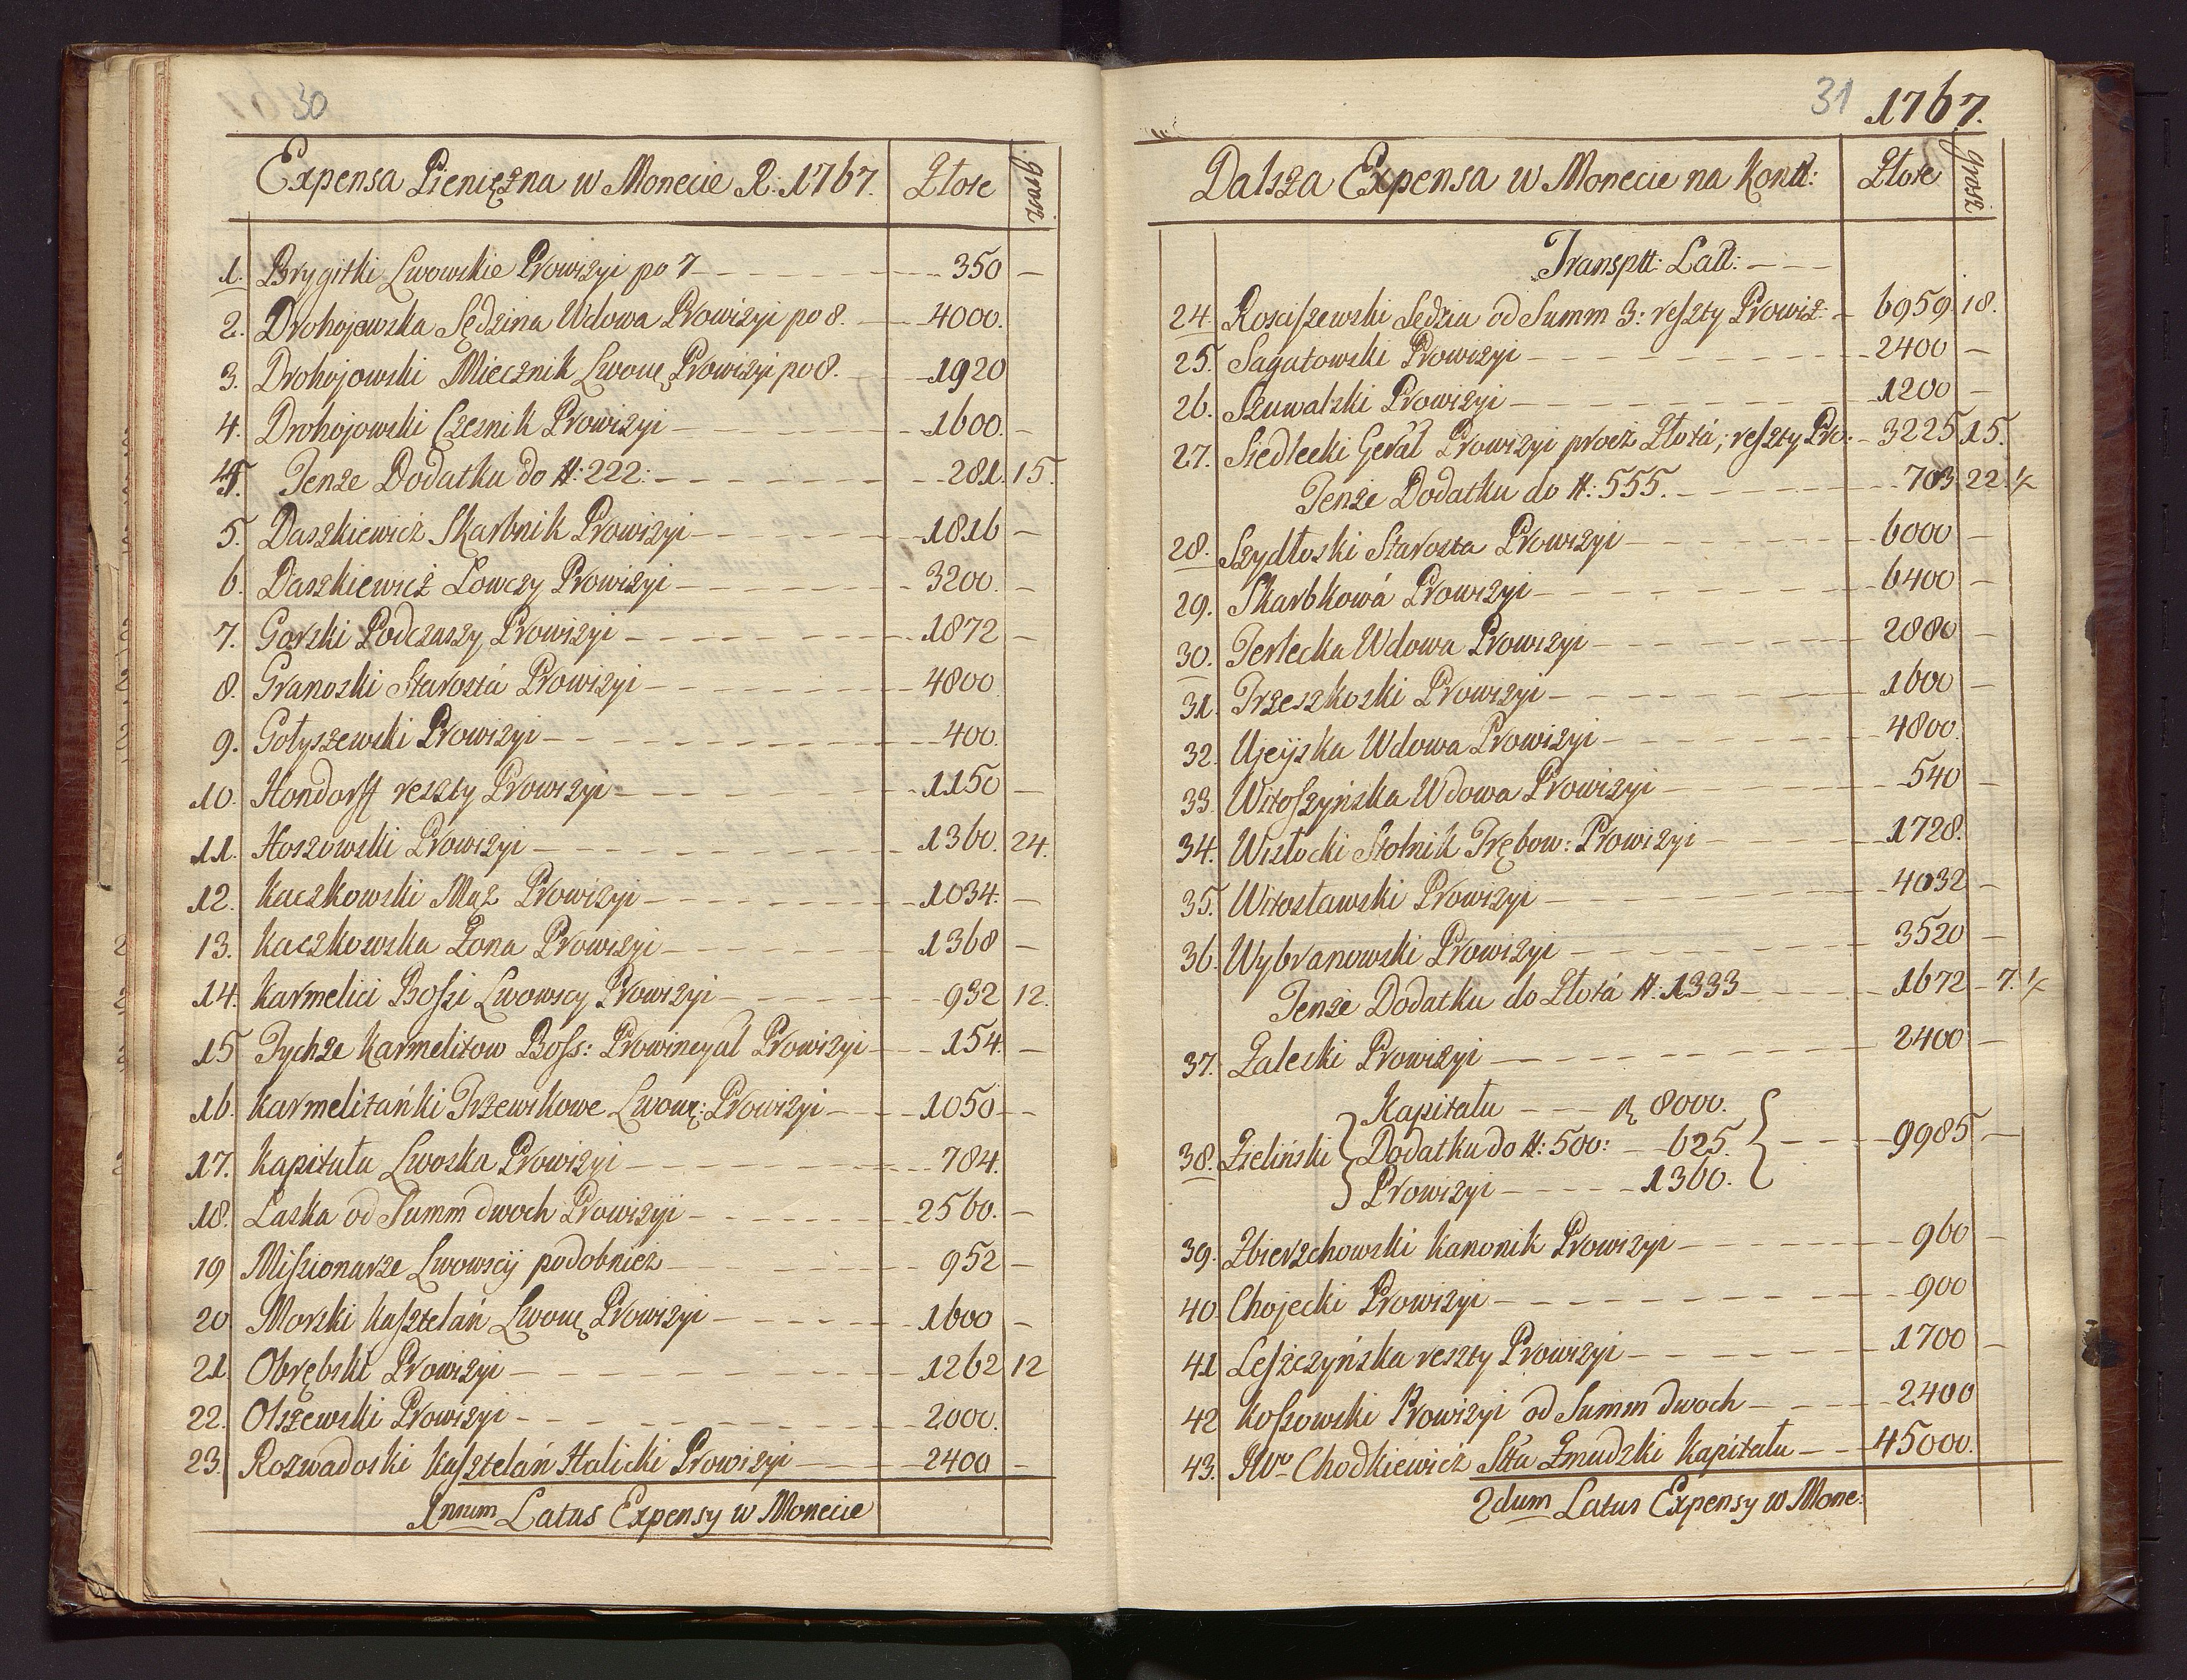 30
Expensa Pieniężna w Monecie R: 1767. Złote grosz
1. Brygitki Lwowskie Prowizyi po 7 - - - 350 -
2. Drohojewska Sędzina Wdowa Prowizyi po 8. - - 4000.
3. Drohojowski Miecznik Lwow: Prowizyi po 8. - - 1920
4. Drohojowski Czesnik Prowizyi - - - 1600. -
Tenże Dodatku do #: 222: - - - 281. 15.
5. Daszkiewicz Skarbnik Prowizyi - - - 1816 -
6. Daszkiewicz Łowczy Prowizyi - - - 3200. -
7. Gorski Podczaszy Prowizyi - - - 1872 -
8. Granoski Starosta Prowizyi - - - 4800
9. Gołyszewski Prowizyi - - - 400.
10. Hondorff reszty Prowizyi - - - 1150 -
11. Hoszowski Prowizyi - - - 1360. 24.
12. Kaczkowski Mąż Prowizyi - - - 1034. -
13. Kaczkowska Żona Prowizyi - - - 1368 -
14. Karmelici Bossi Lwowscy Prowizyi - - - 932 12.
15 Tychże Karmelitow Boss: Prowincyał Prowizyi - - 154. -
16. Karmelitańki Trzewikowe Lwow: Prowizyi - - 1050 -
17. Kapituła Lwoska Prowizyi - - - 784.
18. Laska od Summ dwoch Prowizyi - - - 2560. -
19 Missionarze Lwowscy podobnież - - - 952 -
20 Morski Kasztelan Lwow: Prowizyi - - - 1600 -
21 Obrębski Prowizyi - - - 1262 12
22. Olszewski Prowizyi - - - 2000.
23. Rozwadoski Kasztelan Halicki Prowizyi - - - 2400 -
1mum Latus Expensy w Monecie
31 1767.
Dalsza Expensa w Monecie na Kontt: Złote grosz
Transptt: Latt: - - -
24. Rosciszewski Sędzia od Summ 3: reszty Prowiz: - 6959. 18.
25. Sagatowski Prowizyi - - - 2400 -
26. Szuwalski Prowizyi - - - 1200 -
27. Siedlecki Gerał Prowizyi procz Złota; reszty Pro: - 3225 15.
Tenże Dodatku do #: 555. - - - 703. 22. ½
28. Szydłoski Starosta Prowizyi - - - 6000 -
29. Skarbkowa Prowizyi - - - 6400 -
30. Terlecka Wdowa Prowizyi - - - 2880 -
31. Trzeszkoski Prowizyi - - - 1600 -
32. Ujeyska Wdowa Prowizyi - - - 4800.
33. Witoszyńska Wdowa Prowizyi - - - 540 -
34. Wisłocki Stolnik Trębow: Prowizyi - - - 1728.
35. Witosławski Prowizyi - - - 4032 -
36. Wybranowski Prowizyi - - - 3520 -
Tenże Dodatku do Złota #: 1333 - - - 1672 - 7. ½
37. Zaleski Prowizyi - - - 2400 -
Kapitału - - - 8000.
38. Zieliński Dodatku do #: 500: - 625. - - - 9985 -
Prowizyi - - - 1360.
39. Zbierzchowski Kanonik Prowizyi - - - 960 -
40 Chojecki Prowizyi - - - 900
41 Leszczyńska reszty Prowizyi - - - 1700 -
42 Kossowski Prowizyi od Summ dwoch - - - 2400
43. JWo Chodkiewicz Stta Żmudzki Kapitału - - 45000.
2dum Latus Expensy w Mone: